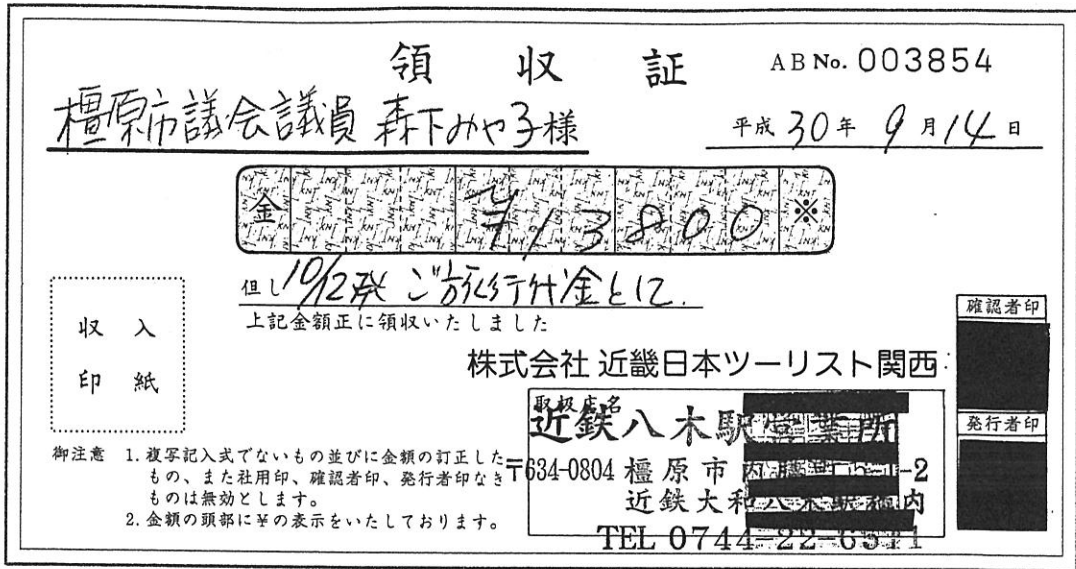 領収証
ABNo. 003854
橿原市議会議員 森下みや子様
平成30年9月14日
金 ¥13800※
但し10/12発 ご旅行代金として
上記金額正に領収いたしました
収入
印紙
株式会社 近畿日本ツーリスト関西
確認者印
発行者印
取扱店名
近鉄八木駅営業所
〒634-0804 橿原市内膳町 -2
近鉄大和八木駅構内
TEL 0744-22-6511
御注意 1. 複写記入式でないもの並びに金額の訂正した
もの、また社用印、確認者印、発行者印なき
ものは無効とします。
2. 金額の頭部に¥の表示をいたしております。